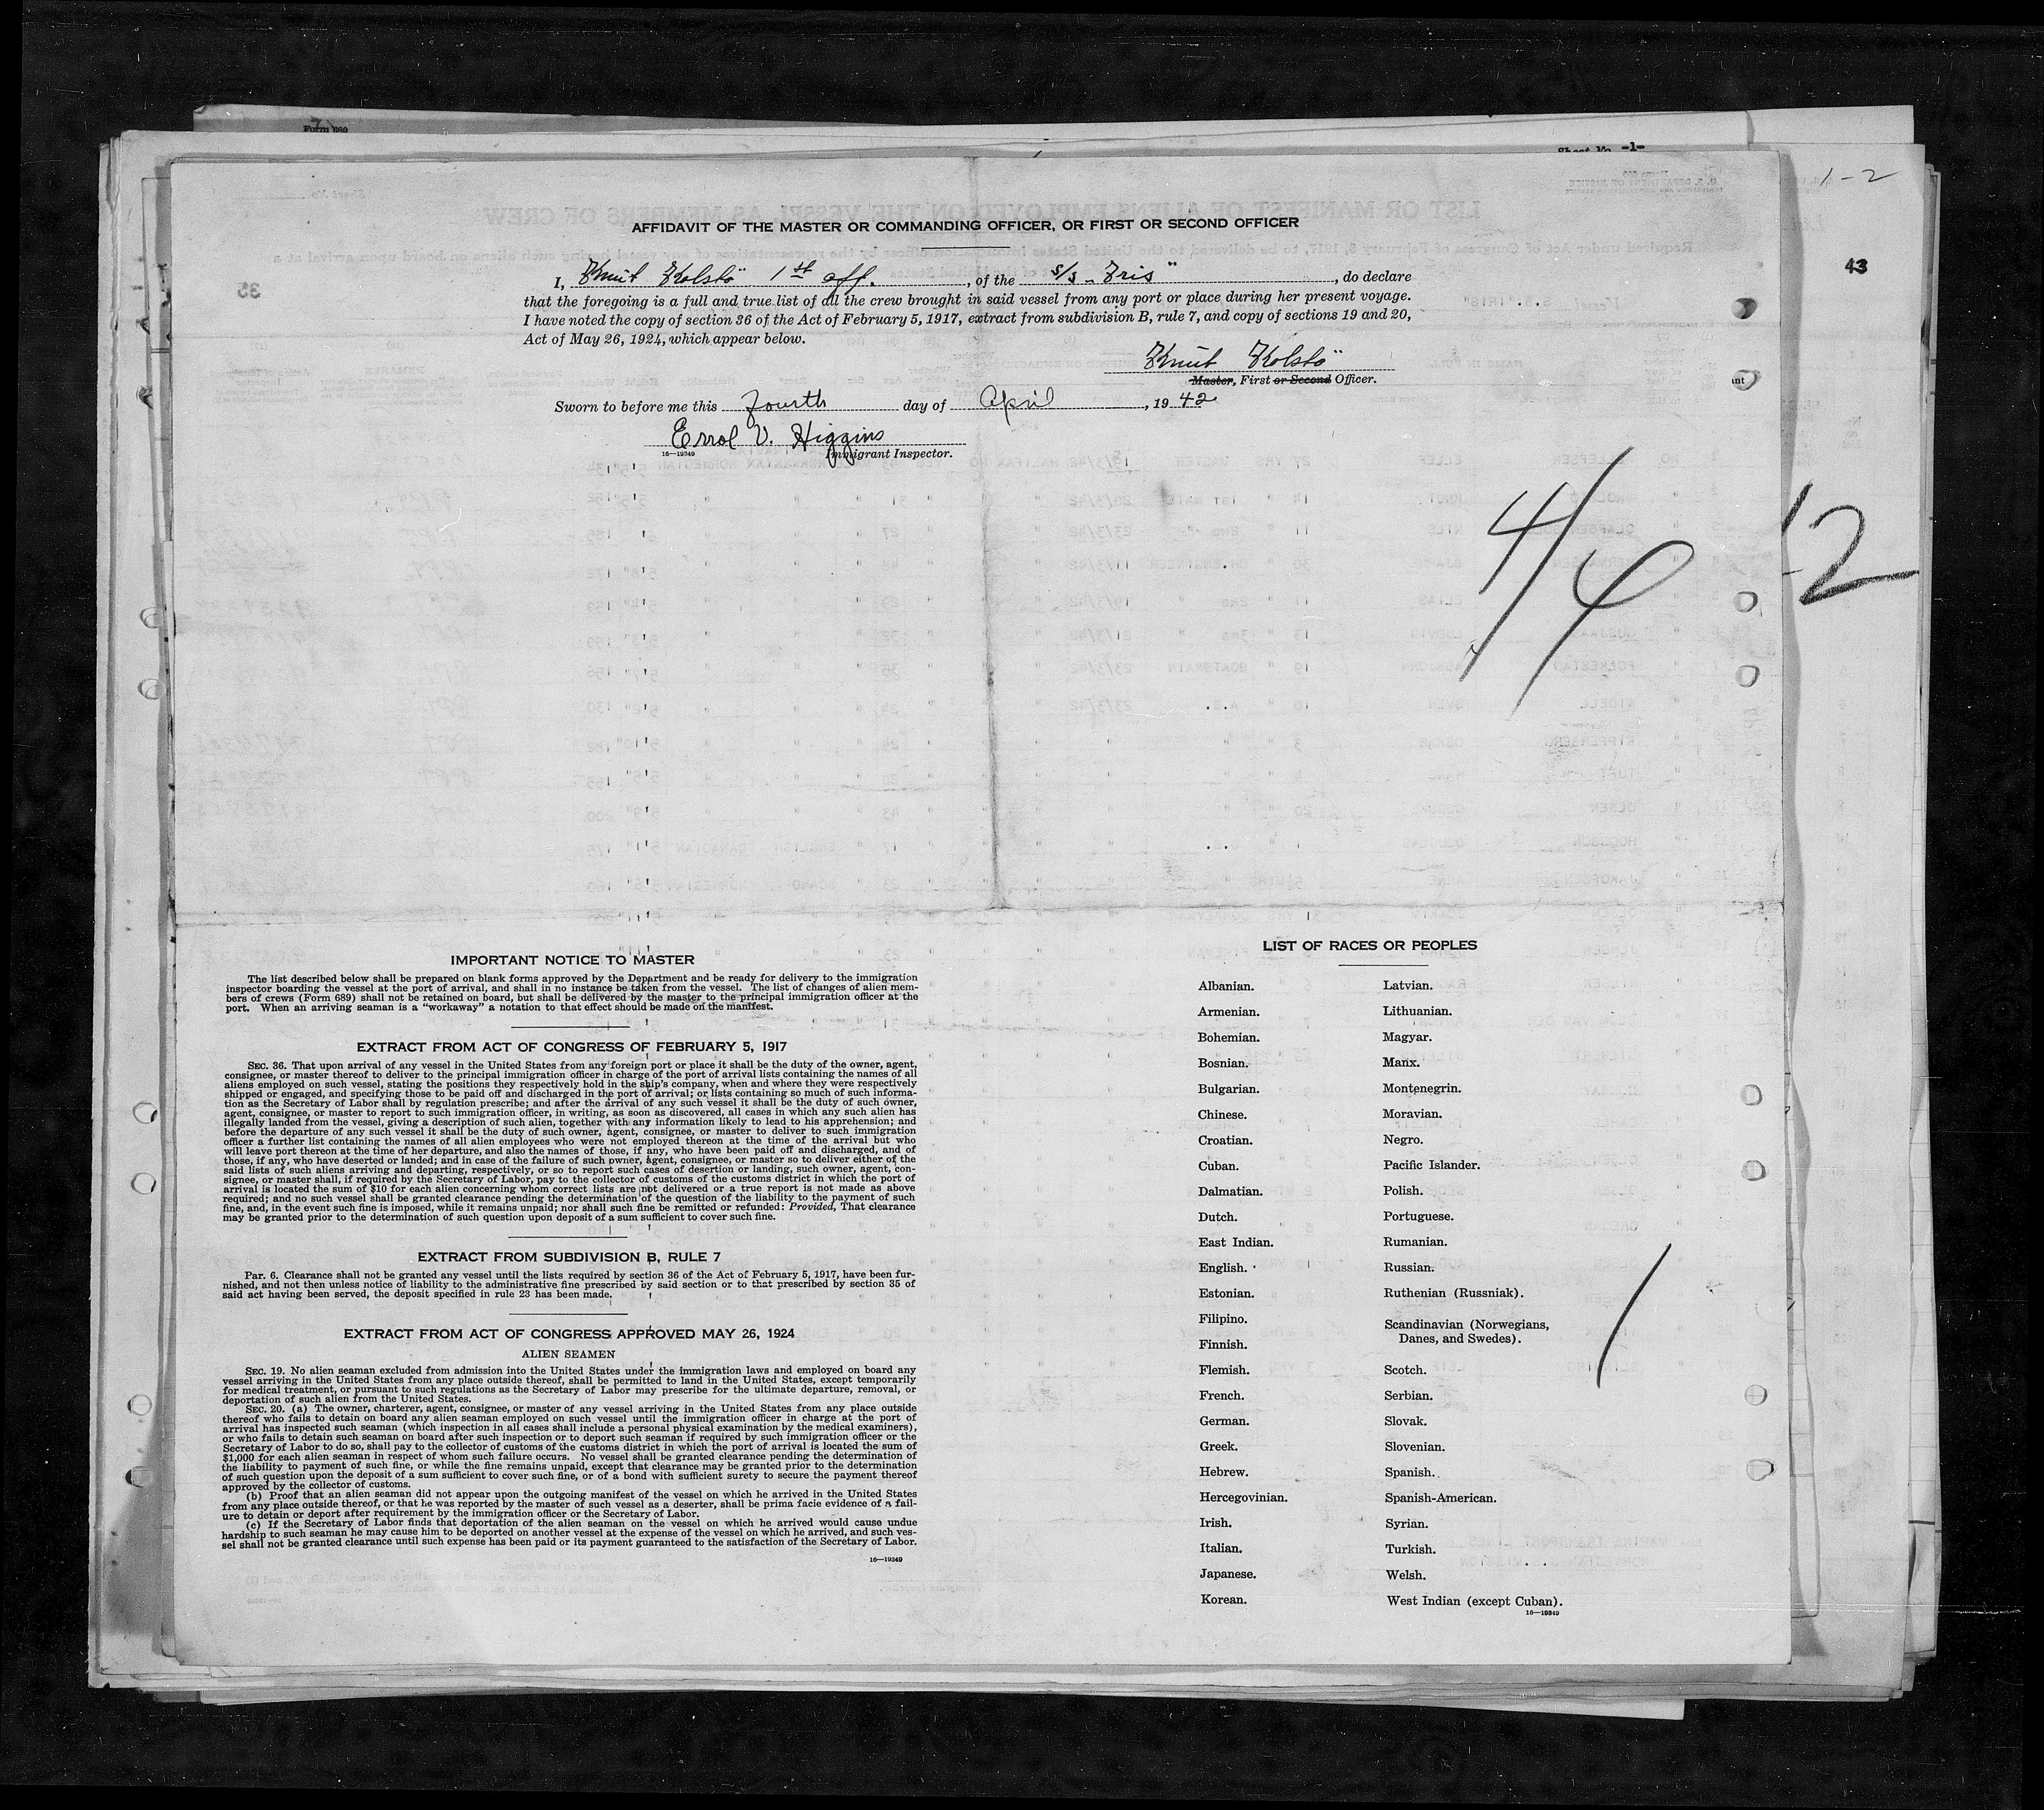 Form 689
Sheet No. -1-
1-2
43
AFFIDAVIT OF THE MASTER OR COMMANDING OFFICER, OR FIRST OR SECOND OFFICER
I, Knut Kolstö 1st off. , of the s/s "Iris" , do declare
that the foregoing is a full and true list of all the crew brought in said vessel from any port or place during her present voyage.
I have noted the copy of section 36 of the Act of February 5, 1917, extract from subdivision B, rule 7, and copy of sections 19 and 20,
Act of May 26, 1924, which appear below.
Knut Kolstö
Master, First or Second Officer.
Sworn to before me this Fourth day of April , 1942
Errol V. Higgins
16—19349 Immigrant Inspector.
4/
12
IMPORTANT NOTICE TO MASTER
The list described below shall be prepared on blank forms approved by the Department and be ready for delivery to the immigration
inspector boarding the vessel at the port of arrival, and shall in no instance be taken from the vessel. The list of changes of alien mem-
bers of crews (Form 689) shall not be retained on board, but shall be delivered by the master to the principal immigration officer at the
port. When an arriving seaman is a "workaway" a notation to that effect should be made on the manifest.
EXTRACT FROM ACT OF CONGRESS OF FEBRUARY 5, 1917
SEC. 36. That upon arrival of any vessel in the United States from any foreign port or place it shall be the duty of the owner, agent,
consignee, or master thereof to deliver to the principal immigration officer in charge of the port of arrival lists containing the names of all
aliens employed on such vessel, stating the positions they respectively hold in the ship's company, when and where they were respectively
shipped or engaged, and specifying those to be paid off and discharged in the port of arrival; or lists containing so much of such informa-
tion as the Secretary of Labor shall by regulation prescribe; and after the arrival of any such vessel it shall be the duty of such owner,
agent, consignee, or master to report to such immigration officer, in writing, as soon as discovered, all cases in which any such alien has
illegally landed from the vessel, giving a description of such alien, together with any information likely to lead to his apprehension; and
before the departure of any such vessel it shall be the duty of such owner, agent, consignee, or master to deliver to such immigration
officer a further list containing the names of all alien employees who were not employed thereon at the time of the arrival but who
will leave port thereon at the time of her departure, and also the names of those, if any, who have been paid off and discharged, and of
those, if any, who have deserted or landed; and in case of the failure of such owner, agent, consignee, or master so to deliver either of the
said lists of such aliens arriving and departing, respectively, or so to report such cases of desertion or landing, such owner, agent, con-
signee, or master shall, if required by the Secretary of Labor, pay to the collector of customs of the customs district in which the port of
arrival is located the sum of $10 for each alien concerning whom correct lists are not delivered or a true report is not made as above
required; and no such vessel shall be granted clearance pending the determination of the question of the liability to the payment of such
fine, and, in the event such fine is imposed, while it remains unpaid; nor shall such fine be remitted or refunded: Provided, That clearance
may be granted prior to the determination of such question upon deposit of a sum sufficient to cover such fine.
EXTRACT FROM SUBDIVISION B, RULE 7
Par. 6. Clearance shall not be granted any vessel until the lists required by section 36 of the Act of February 5, 1917, have been fur-
nished, and not then unless notice of liability to the administrative fine prescribed by said section or to that prescribed by section 35 of
said act having been served, the deposit specified in rule 23 has been made.
EXTRACT FROM ACT OF CONGRESS APPROVED MAY 26, 1924
ALIEN SEAMEN
SEC. 19. No alien seaman excluded from admission into the United States under the immigration laws and employed on board any
vessel arriving in the United States from any place outside thereof, shall be permitted to land in the United States, except temporarily
for medical treatment, or pursuant to such regulations as the Secretary of Labor may prescribe for the ultimate departure, removal, or
deportation of such alien from the United States.
SEC. 20. (a) The owner, charterer, agent, consignee, or master of any vessel arriving in the United States from any place outside
thereof who fails to detain on board any alien seaman employed on such vessel until the immigration officer in charge at the port of
arrival has inspected such seaman (which inspection in all cases shall include a personal physical examination by the medical examiners),
or who fails to detain such seaman on board after such inspection or to deport such seaman if required by such immigration officer or the
Secretary of Labor to do so, shall pay to the collector of customs of the customs district in which the port of arrival is located the sum of
$1,000 for each alien seaman in respect of whom such failure occurs. No vessel shall be granted clearance pending the determination of
the liability to payment of such fine, or while the fine remains unpaid, except that clearance may be granted prior to the determination
of such question upon the deposit of a sum sufficient to cover such fine, or of a bond with sufficient surety to secure the payment thereof
approved by the collector of customs.
(b) Proof that an alien seaman did not appear upon the outgoing manifest of the vessel on which he arrived in the United States
from any place outside thereof, or that he was reported by the master of such vessel as a deserter, shall be prima facie evidence of a fail-
ure to detain or deport after requirement by the immigration officer or the Secretary of Labor.
(c) If the Secretary of Labor finds that deportation of the alien seaman on the vessel on which he arrived would cause undue
hardship to such seaman he may cause him to be deported on another vessel at the expense of the vessel on which he arrived, and such ves-
sel shall not be granted clearance until such expense has been paid or its payment guaranteed to the satisfaction of the Secretary of Labor.
16—19349
LIST OF RACES OR PEOPLES
Albanian.
Armenian.
Bohemian.
Bosnian.
Bulgarian.
Chinese.
Croatian.
Cuban.
Dalmatian.
Dutch.
East Indian.
English.
Estonian.
Filipino.
Finnish.
Flemish.
French.
German.
Greek.
Hebrew.
Hercegovinian.
Irish.
Italian.
Japanese.
Korean.
Latvian.
Lithuanian.
Magyar.
Manx.
Montenegrin.
Moravian.
Negro.
Pacific Islander.
Polish.
Portuguese.
Rumanian.
Russian.
Ruthenian (Russniak).
Scandinavian (Norwegians,
Danes, and Swedes).
Scotch.
Serbian.
Slovak.
Slovenian.
Spanish.
Spanish-American.
Syrian.
Turkish.
Welsh.
West Indian (except Cuban).
16—19349